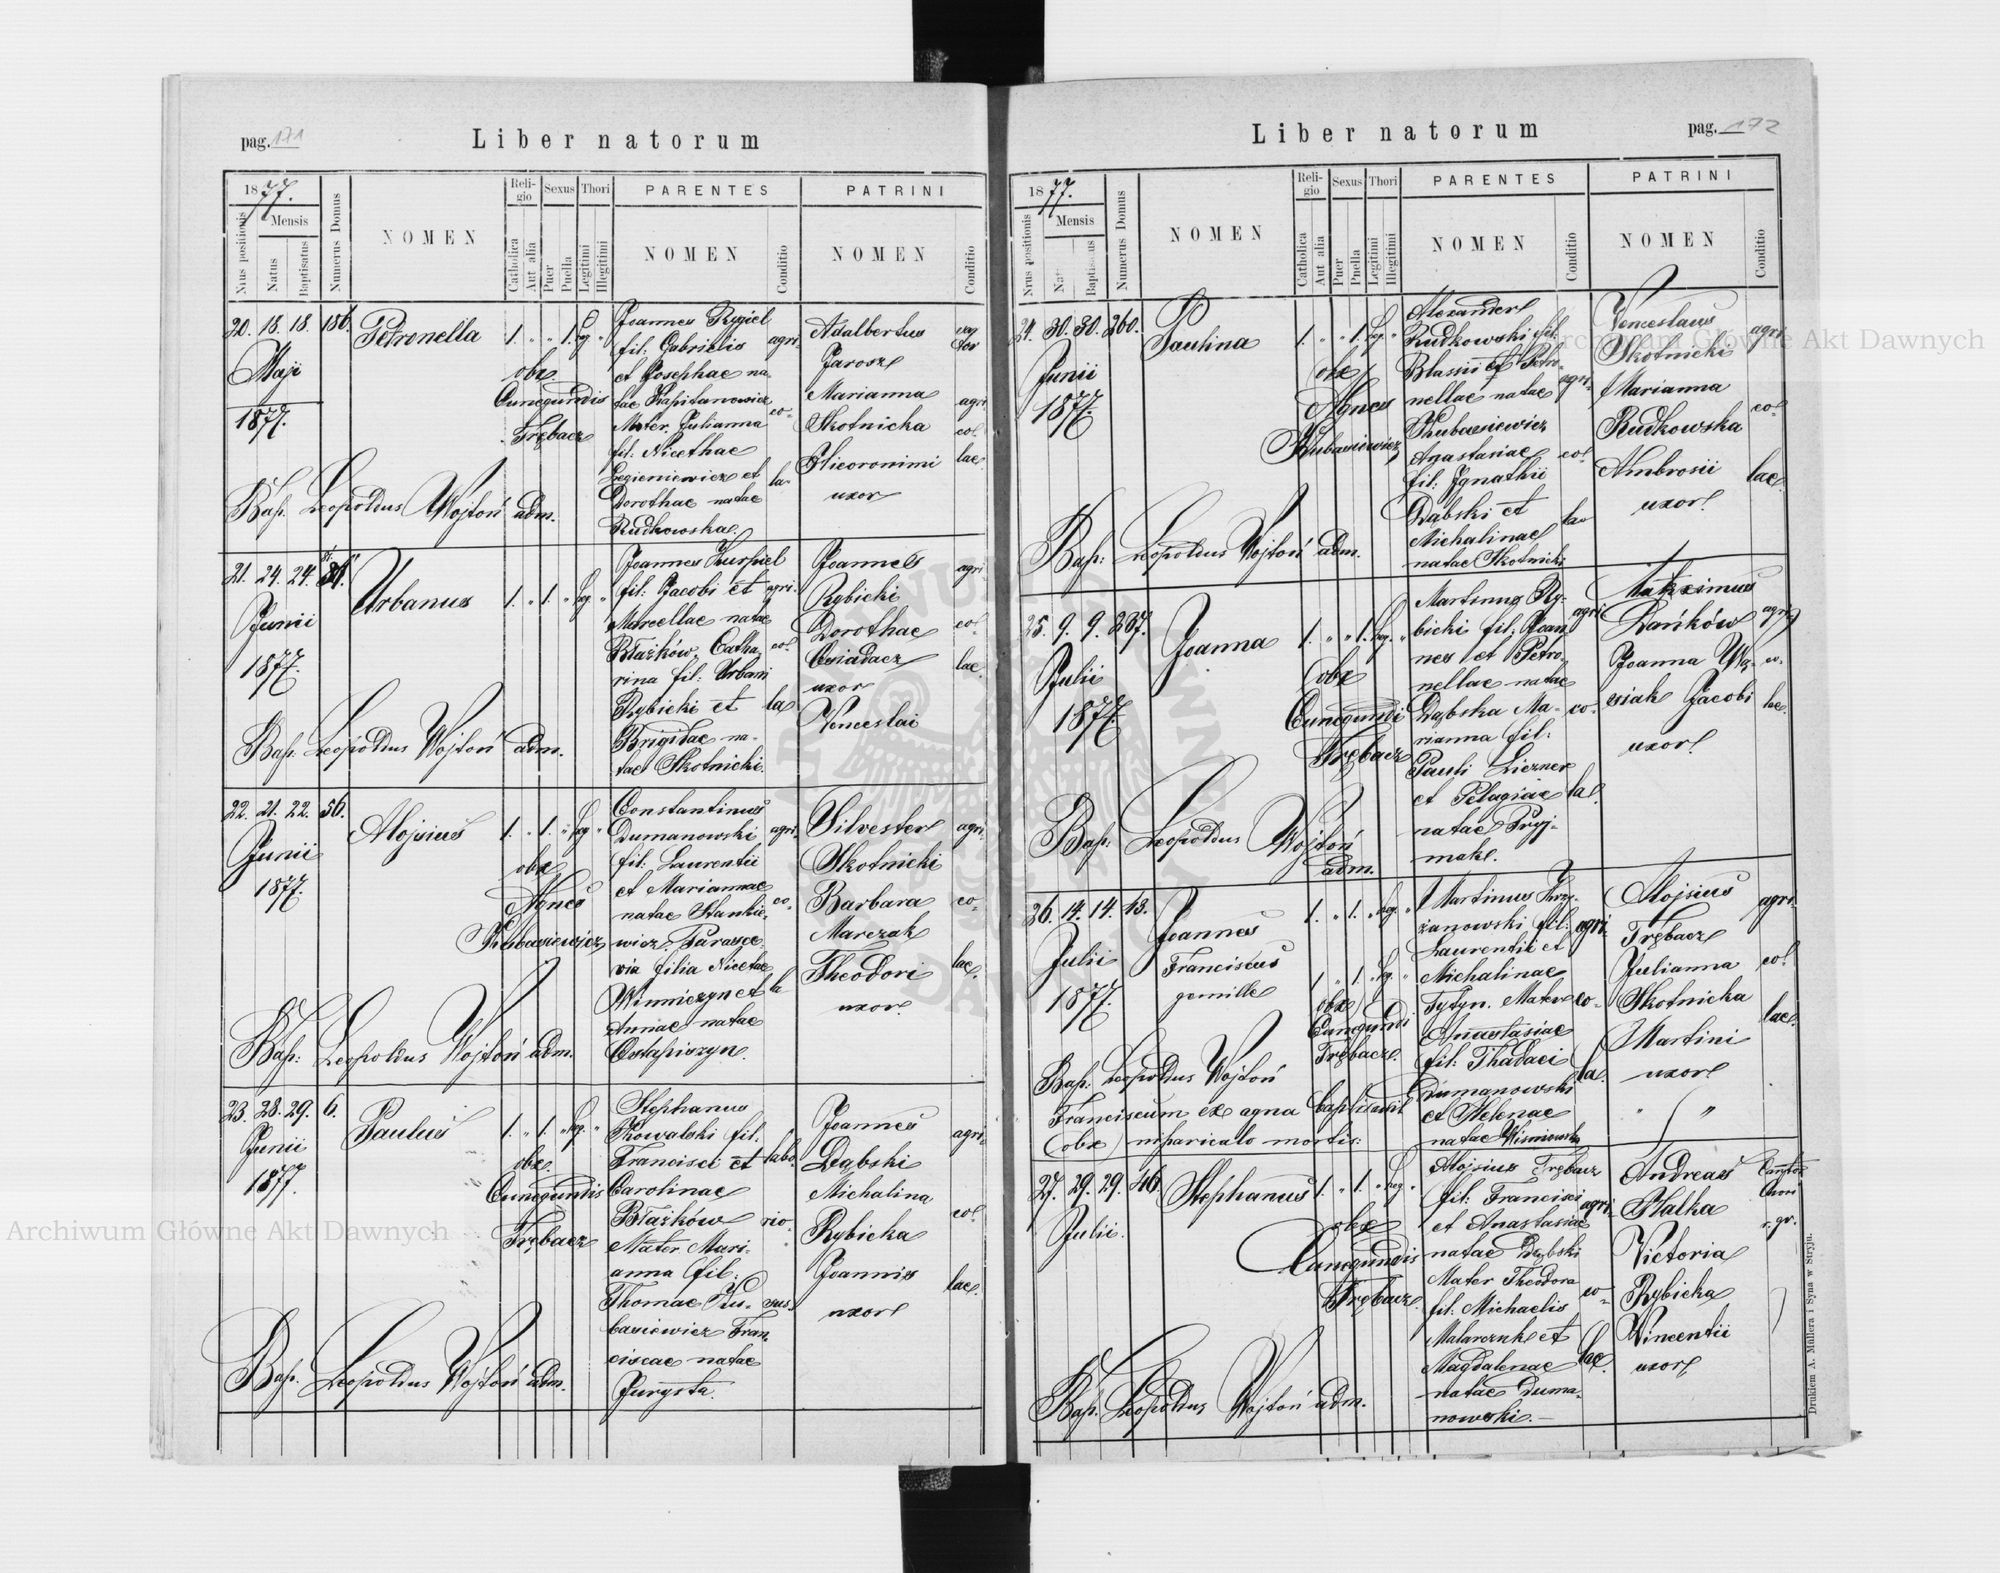 pag. 171
Liber natorum
1877.
Nrus positionis
Mensis
Natus
Baptisatus
Numerus Domus
NOMEN
Reli-
gio
Catholica
Aut alia
Sexus
Puer
Puella
Thori
Legitimi
Illegitimi
PARENTES
NOMEN
Conditio
PATRINI
NOMEN
Conditio
20. 18. 18. 186.
Maji
1877.
Petronella
1. " " 1. leg. "
obx
Cunegundis
Trębacz
Joannes Rygiel
fil: Gabrielis
et Josephae na-
tae Kapitanowicz
Mater. Julianna
fil: Nicethae
et
Dorothae natae
Rudkowska.
agri-
co-
la-
Adalbertus
Jarosz
Marianna
Skotnicka
Hieoronimi
uxor
agri
col
lae
Bap. Leopoldus Wojtoń adm.
21. 24. 24.
Junii
1877.
Urbanus
1. " 1. " leg. "
Joannes Kurpiel
fil: Jacobi et
Marcellae natae
Błażków, Catha-
rina fil: Urbani
Rybicki et
Brigidae na-
tae Skotnicki.
agri-
col
la
Joannes
Rybicki
Dorothae
Osiadacz
uxor
Venceslai
agri-
co-
lae.
Bap. Leopoldus Wojtoń adm.
22. 21. 22. 56.
Junii
1877.
Alojsius
1. " 1. " leg "
obx
Agnes
Kubasiewicz
Constantinus
Dumanowski
fil: Laurentii
et Mariannae
natae Stankie-
wicz. Parasce-
via filia Nicetae
Winniczyn et
Annae natae
Ostapiszyn.
agri-
co-
la
Silvester
Skotnicki
Barbara
Marczak
Theodori
uxor.
agri-
co-
lae.
Bap: Leopoldus Wojtoń adm.
23. 28. 29. 6.
Junii
1877.
Paulus
1. " 1. " leg. "
obx.
Cunegundis
Trębacz
Stephanus
Kowalski fil:
Francisci et
Carolinae
Błażków
Mater Mari-
anna fil:
Thomae Ku-
basiewicz Fran-
ciscae natae
Jurysta.
labo-
rio-
sus
Joannes
Dąbski
Michalina
Rybicka
Joannis
uxor
agri-
col
lae.
Bap. Leopoldus Wojtoń adm.
pag. 172
Liber natorum
1877.
Nrus positionis
Mensis
Baptisatus
Numerus Domus
NOMEN
Reli-
gio
Catholica
Aut alia
Sexus
Puer
Puella
Thori
Legitimi
Illegitimi
PARENTES
NOMEN
Conditio
PATRINI
NOMEN
Conditio
24. 30. 30. 260.
Junii
1877.
Paulina
1. " " 1. leg. "
obx
Agnes
Kubasiewicz
Alexander
Rudkowski fil:
Blasii et Petro-
nellae natae
Kubasiewicz
Anastasiae
fil: Ignathii
Dąbski et
Michalinae
natae Skotnicki
agri-
col
la-
Venceslaus
Skotnicki
Marianna
Rudkowska
Ambrosii
uxor
agri-
col
lae.
Bap: Leopoldus Wojtoń adm.
25. 9. 9. 237.
Julii
1877.
Joanna
1. " " 1. leg. "
obx
Cunegundi
Trębacz
Martinus Ry-
bicki fil: Joan-
nes et Petro-
nellae natae
Dąbska Ma-
rianna fil:
Pauli Liczner
et Pelagiae
natae Pryj-
mak.
agri-
co-
la.
Makximus
Dańków
Joanna Wą-
siak Jacobi
uxor
agri-
co-
lae.
Bap: Leopoldus Wojtoń
adm.
26. 14. 14. 43.
Julii
1877.
Joannes
Franciscus
gemille
1. " 1. " leg. "
1 " 1. " leg. "
obx
Cunegundi
Trębacz.
Martinus Krzy-
żanowski fil:
Laurentii et
Michalinae
Tytyn. Mater
Anastasiae
fil: Thadaei
Dumanowski
et Helenae
natae Wisniowska
agri-
co-
la.
Alojsius
Trębacz
Julianna
Skotnicka
Martini
uxor
agri-
col
lae.
Bap: Leopoldus Wojtoń
Franciscum ex agna baptisavit
(obx) niparicalo mortis:
27. 29. 29. 46.
Julii.
Stephanus
1. " 1. " leg. "
obx
Cunegundis
Trębacz.
Alojsius Trębacz
fil: Francisci
et Anastasiae
natae Dąbski
Mater Theodora
fil: Michaelis
Malarczuk et
Magdalenae
natae Duma-
nowski.
agri-
co-
lae.
Andreas
Halka
Victoria
Rybicka
Vincentii
uxor
Bap. Leopoldus Wojtoń adm.
Drukiem A. Müllera i Syna w Stryju.
Archiwum Główne Akt Dawnych
Archiwum Główne Akt Dawnych